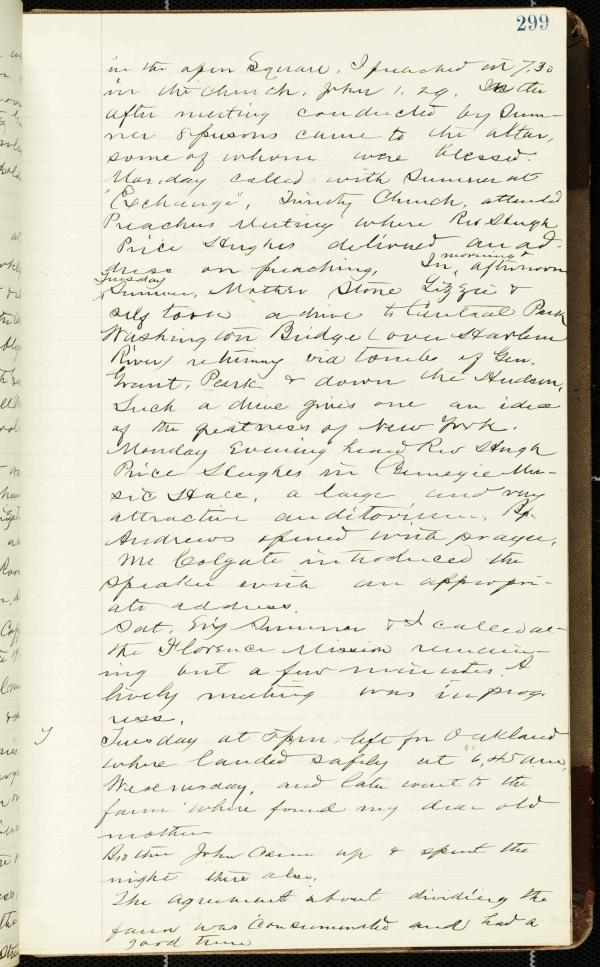 299
in the open Square. I preached at 7.30
in the church, John 1. 29. In the
after meeting conducted by Sum-
ner 8 persons came to the altar,
some of whom were blessed.
Monday called with Sumner at
"Exchange", Trinity Church, attended
Preachers Meeting where Rev Hugh
Price Hughes delivered an ad-
dress on preaching. In morning & afternoon
Tuesday
Sumner, Mother Stone Lizzie &
self took a drive to Central Park
Washington Bridge (over Harlem
River) returning via tomb of Gen.
Grant, Park & down the Hudson,
Such a drive gives one an idea
of the greatness of New York.
Monday Evening heard Rev Hugh
Price Hughes in Carnegie Mu-
sic Hall, a large and very
attractive auditorium. Bp.
Andrews opened with prayer.
Mr Colgate introduced the
speaker with an appropri-
ate address.
Sat. Ev'g Sumner & I called at
the Florence Mission remain-
ing but a few minutes. A
lively meeting was in prog-
ress.
Tuesday at 5 pm. left for Oakland
where landed safely at 6,45 a.m,
Wednesday, and later went to the
farm where found my dear old
mother
Brother John came up & spent the
night there also.
The agreement about dividing the
farm was consummated and had a
good time